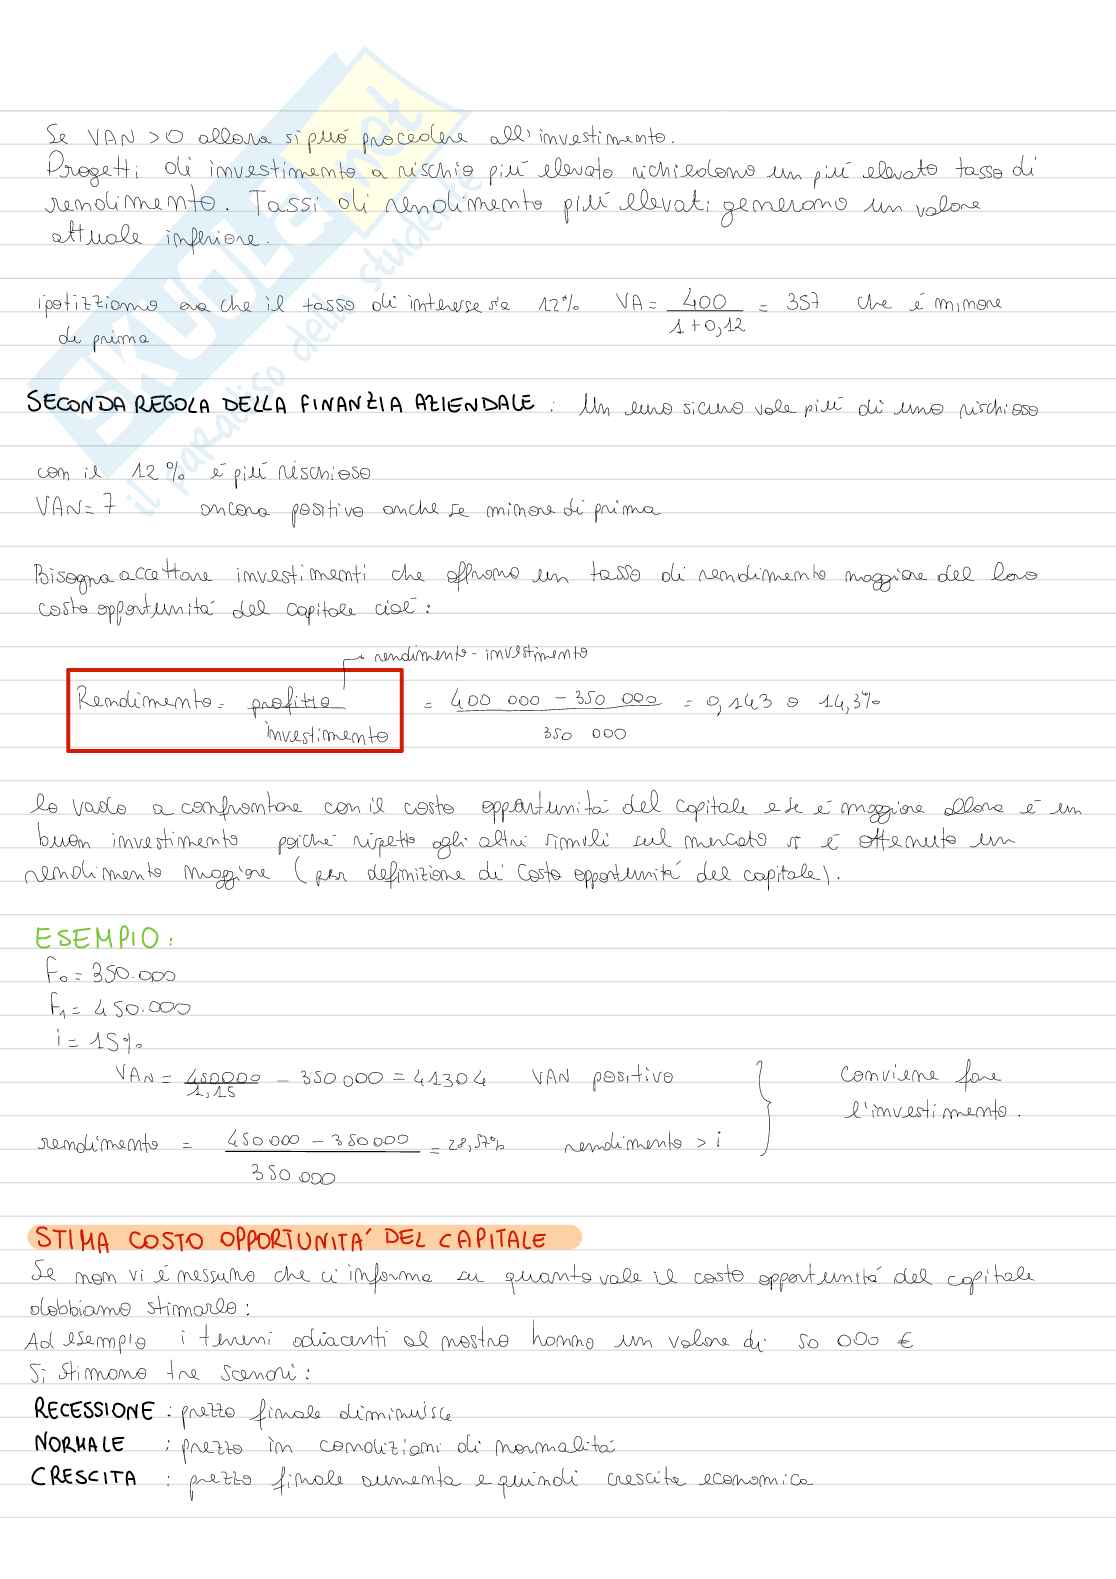 Se VAN > 0 allora si può procedere all'investimento.
Progetti di investimento a rischio più elevato richiedono un più elevato tasso di
rendimento. Tassi di rendimento più elevati generano un valore
attuale inferiore.
ipotizziamo ora che il tasso di interesse sia 12% VA = 400 / 1+0,12 = 357 che è minore
di prima
SECONDA REGOLA DELLA FINANZIA AZIENDALE : Un euro sicuro vale più di uno rischioso
con il 12% è più rischioso
VAN = 7 ancora positivo anche se minore di prima
Bisogna accettare investimenti che offrono un tasso di rendimento maggiore del loro
costo opportunità del capitale cioè :
→ rendimento - investimento
Rendimento = profitto / investimento = 400 000 - 350 000 / 350 000 = 0,143 o 14,3%
lo vado a confrontare con il costo opportunità del capitale e se è maggiore allora è un
buon investimento poiché rispetto agli altri simili sul mercato si è ottenuto un
rendimento maggiore (per definizione di costo opportunità del capitale).
ESEMPIO :
F0 = 350.000
F1 = 450.000
i = 15%
VAN = 450000 / 1,15 - 350 000 = 41304 VAN positivo
conviene fare
l'investimento.
rendimento = 450 000 - 350 000 / 350 000 = 28,57% rendimento > i
STIMA COSTO OPPORTUNITA' DEL CAPITALE
Se non vi è nessuno che ci informa su quanto vale il costo opportunità del capitale
dobbiamo stimarlo :
Ad esempio i terreni adiacenti al nostro hanno un valore di 50 000 €
Si stimano tre scenari :
RECESSIONE : prezzo finale diminuisce
NORMALE : prezzo in condizioni di normalità
CRESCITA : prezzo finale aumenta e quindi crescita economica
SKUOLA.net
il paradiso dello studente